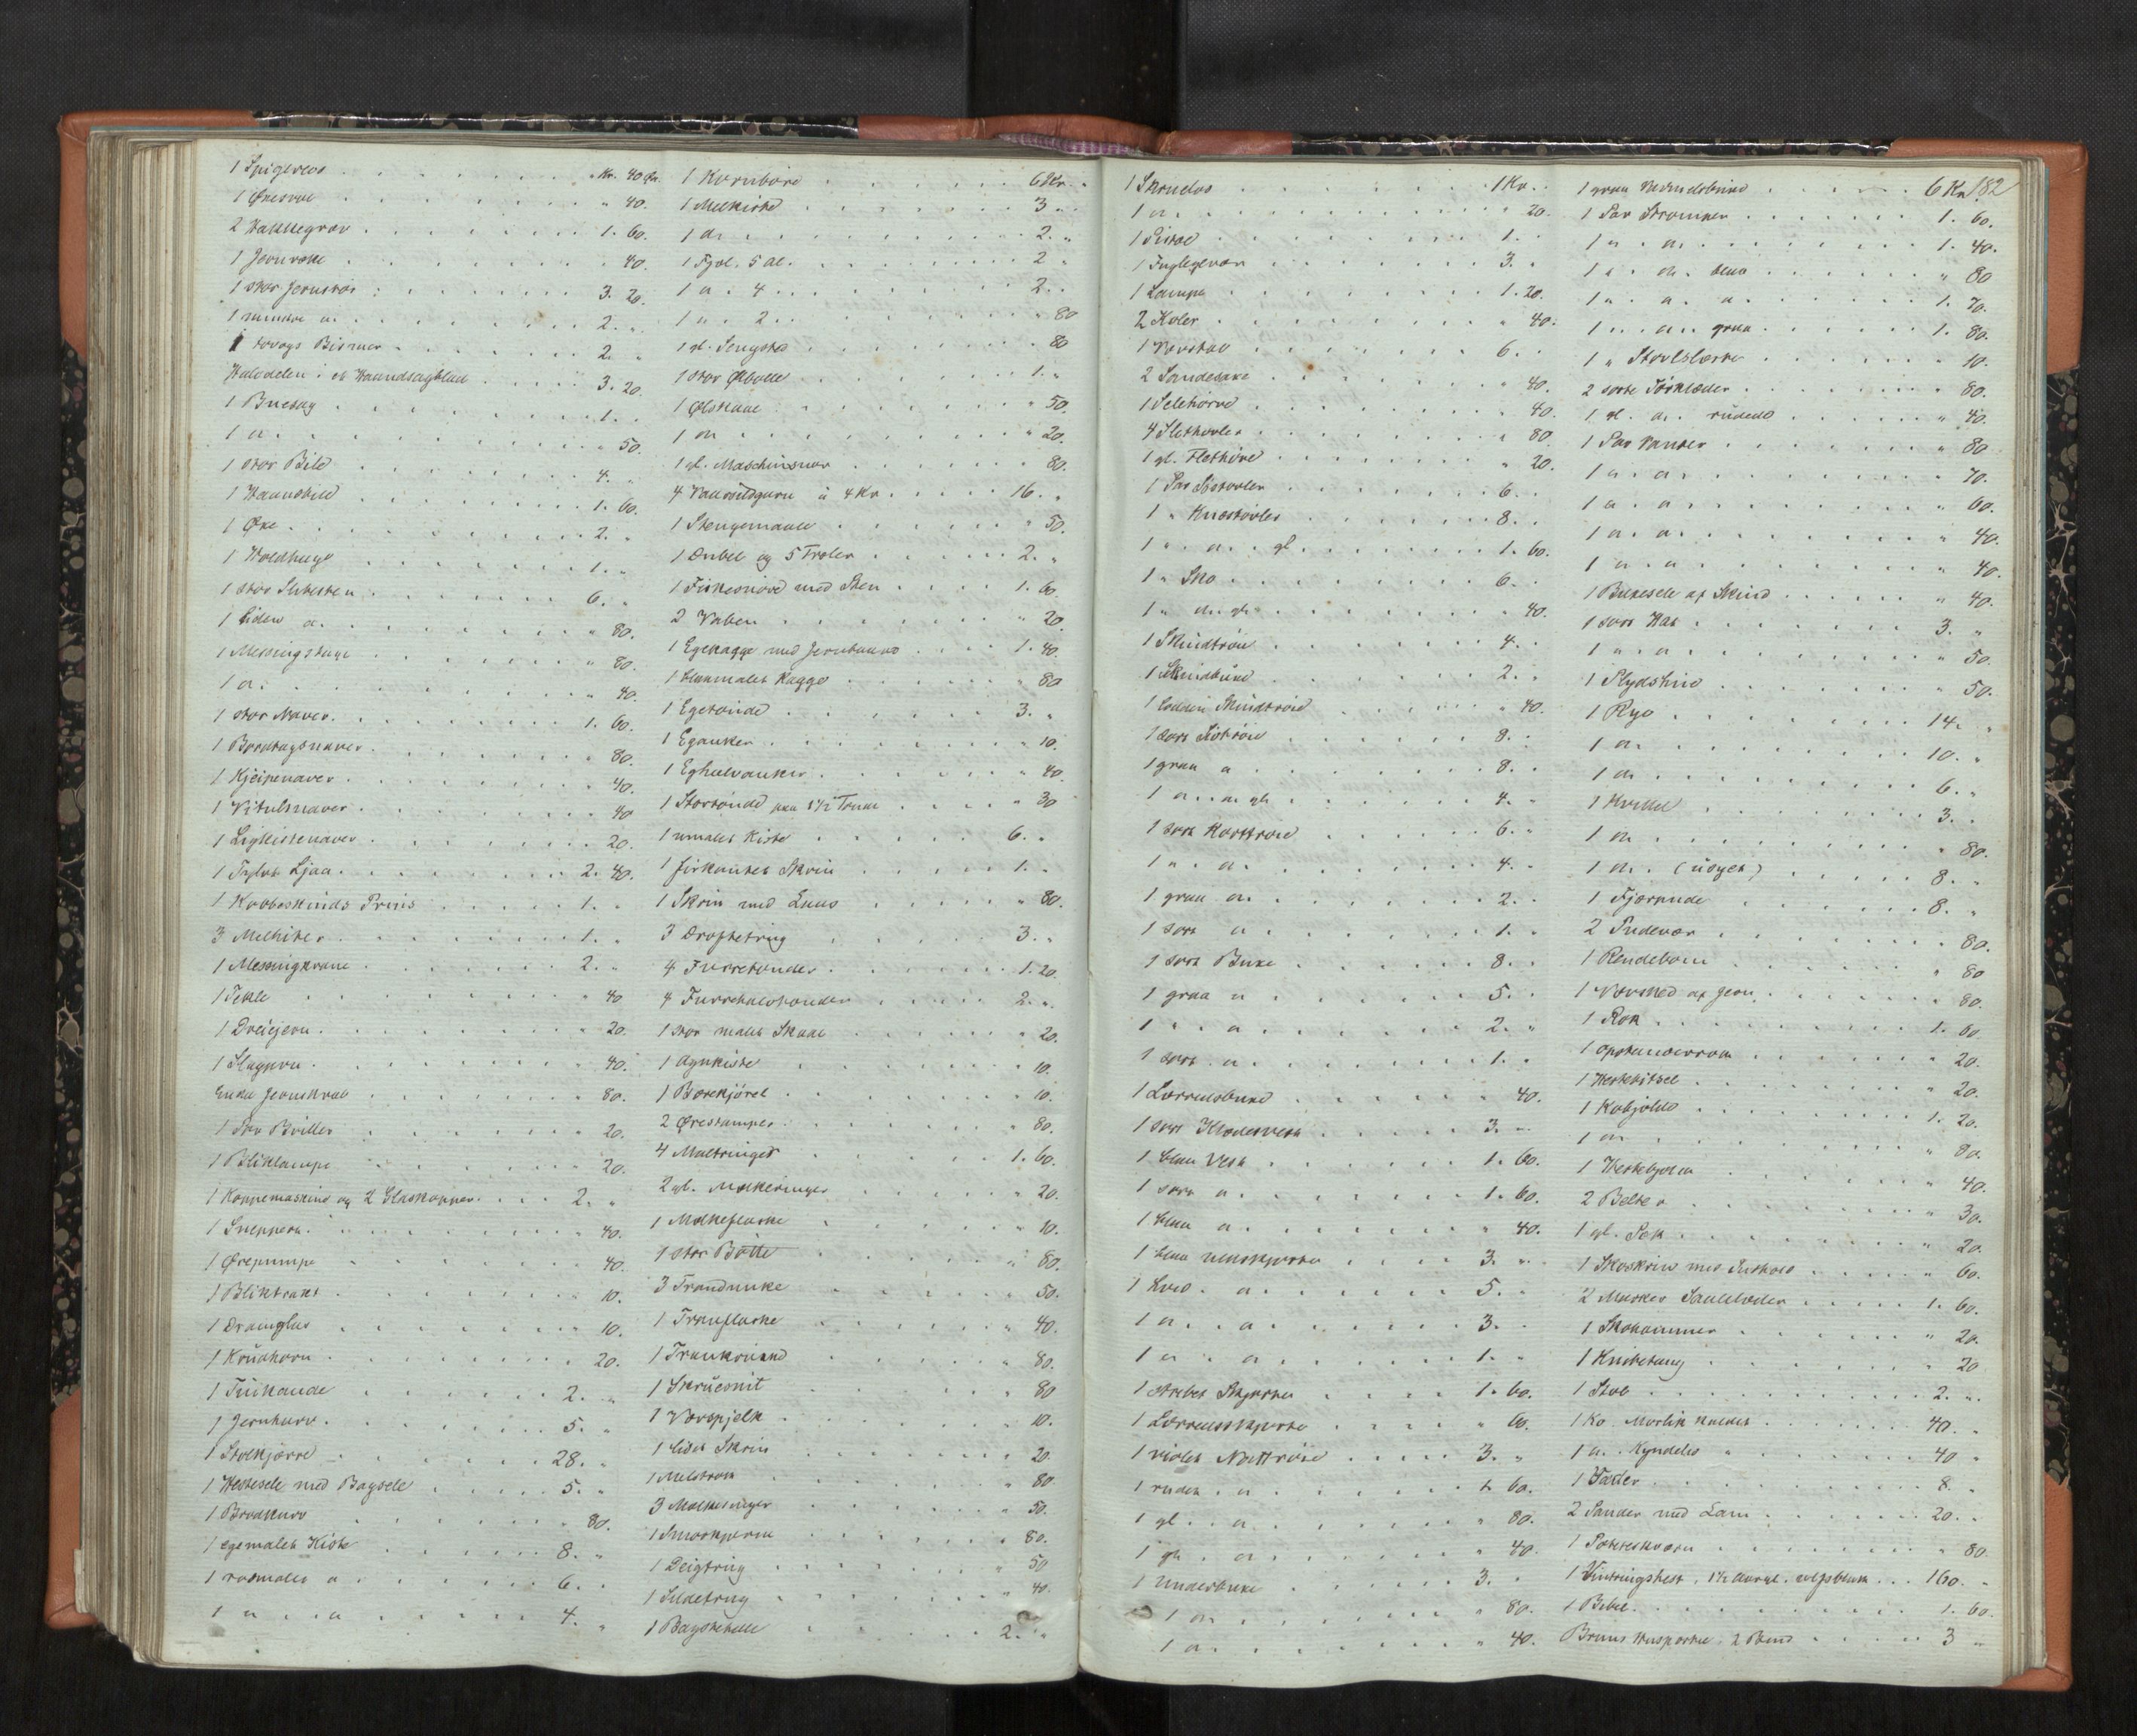 1 Spigerlos . . . Kr. 40 Ør.
1 Øresvae . . . " 40.
2 Hakkegrav . . . 1. 60.
1 Jernroke . . . " 40.
1 stor Jernstör . . . 3. 20.
1 mindre a. . . . 2. "
1 tovogs Bismer . . . 2. "
Halvdelen i et Haandsagblad . . . 3. 20.
1 Buesag . . . 1. "
1 a. . . . " 50.
1 stor Bile . . . 4. "
1 Haandbiil . . . 1. 60.
1 Øxe . . . 2. "
1 Holdhage . . . 1. "
1 stor Slibesten . . . 6. "
1 liden a. . . . " 80.
1 Messingstage . . . " 80.
1 a. . . . " 40.
1 stor Naver . . . 1. 60.
1 Bordsagsnaver . . . " 80.
1 Kjeipenaver . . . " 40.
1 Vitulsnaver . . . " 40
1 Ligkistenaver . . . " 20.
1 Ljaa . . . 2. 40.
1 Kobbeskinds Priis . . . 1. "
3 Melhiter . . . 1. "
1 Messingkrane . . . 2. "
1 Texle . . . " 40
1 Dreiejern . . . " 20.
1 Slagjern . . . " 40.
Endel Jernskrab . . . " 80.
1 Par Briller . . . " 20.
1 Bliklampe . . . " 20.
1 Koppemaskine og 2 Glaskopper . . . 2. "
1 Sneppert . . . " 40.
1 Ørepumpe . . . " 40.
1 Bliktrakt . . . " 10.
1 Dramglas . . . " 10.
1 Krudhorn . . . " 20.
1 Tinkande . . . 2. "
1 Jernharv . . . 5. "
1 Stolkjærre . . . 28. "
1 Hestesele med Bagsele . . . 5. "
1 Brodkurv . . . " 80.
1 egemalet Kiste . . . 8. "
1 rosmalet a . . . 6. "
1 " . a . . . 4. "
1 Kornbøre . . . 6 Kr. "
1 Melkiste . . . 3 "
1 a. . . . 2. "
1 Fjæl. 5 al. . . . 2 "
1 a. 4 . . . 2. "
1 " . 2 . . . " 80
1 gl. Sengsted . . . " 80
1 stor Ølbolle . . . 1. "
1 Ølskaal . . . " 50.
1 a . . . " 20.
1 gl. Maschinsnor . . . " 80.
4 Vaarsildgarn à 4 Kr. . . . 16. "
1 Stengemaale . . . " 50.
1 Dubel og 5 Troler . . . 2. "
1 Fiskesnöre med Sten . . . 1. 60.
2 Vaben . . . " 20.
1 Egekagge med Jernbaand . . . 1. 40.
1 blaamalet Kagge . . . " 80
1 Egetønde . . . 3. "
1 Eganker . . . " 10.
1 Eghalvanker . . . " 40.
1 Stortønde paa 1½ Tønde . . . " 30
1 umalet Kiste . . . 6. "
1 firkantet Skrin . . . 1. "
1 Skrin med Laas . . . " 80.
3 Droftetrug . . . 3. "
4 Furretønder . . . 1. 20.
4 Furrehalvtønder . . . 2. "
1 stor malet Skaal . . . " 20.
1 Agnkiste . . . " 10.
1 Bærekjørel . . . " 10.
2 Ørestamper . . . " 80.
4 Maltringer . . . 1. 60.
2 gl. Melkeringer . . . " 20.
1 Melkeflaske . . . " 10.
1 stor Bötte . . . " 80.
3 Trandunke . . . " 50.
1 Tranflaske . . . " 40.
1 Trankrukke . . . " 80.
1 Skruesnit . . . " 80
1 Vævspjelk . . . " 10.
1 lidet Skrin . . . " 20.
1 Melstrok . . . " 80
3 Melkeringer . . . " 50.
1 Smørkjerne . . . " 80.
1 Deigtrug . . . " 50
1 Sildetrug . . . " 40.
1 Bagstehelle . . . 2. "
182
1 Skrudlos . . . 1 Kr. "
1 a. . . . " 20.
1 Pistol . . . 1. "
1 Fuglegevær . . . 3. "
1 Lampe . . . 1. 20.
2 Koler . . . " 40.
1 Vævstol . . . 6. "
2 Sandesaxe . . . " 40.
1 Selehorve . . . " 40.
4 Slethøvler . . . " 80
1 gl. Flethøvl . . . " 20.
1 Par Søstøvler . . . 6. "
1 " Knæstøvler . . . 8. "
1 " . a. . gl. . . . 1. 60.
1 " Sko . . . 6. "
1 " a. gl. . . . " 40.
1 Skindtröie . . . 4. "
1 Skindbuxe . . . 2. "
1 lodden Skindtröie . . . " 40.
1 sort Sötröie . . . 8. "
1 graa a . . . 8. "
1 a. . a. gl. . . . 4. "
1 sort Korttröie . . . 6. "
1 " . a. . . . 4. "
1 graa a. . . . 2. "
1 sort a . . . 1. "
1 sort Buxe . . . 8. "
1 graa a . . . 5. "
1 " . a . . . 2. "
1 sort a . . . 1. "
1 Lærredsbuxe . . . " 40.
1 sort Klædesvest . . . 3. "
1 blaa Vest . . . 1. 60.
1 sort a . . . 1. 60.
1 blaa a . . . " 40.
1 blaa uldskjorte . . . 3. "
1 hvid . a . . . 5. "
1 a . . a . . . 3. "
1 a . a . . . 1. "
1 stribet Skjorte . . . 1. 60.
1 Lærredsskjorte . . . " 60.
1 violet Nattröie . . . 3. "
1 rudet . a . . . 1. 60.
1 gl. . a . . . " 80.
1 gl. a . . . " 40.
1 Underbuxe . . . 3. "
1 a. . . . " 80.
1 a. . . . " 40.
1 graa Vadmelsbuxe . . . 6 Kr. "
1 Par Strømper . . . 1. 60.
1 " . a. . . . 1. 40.
1 " . a. blaa . . . " 80
1 " . a. a. . . . 1. 70.
1 " . a. graa . . . 1. 80.
1 " Støvlelæster . . . " 10.
2 sorte Tørklæder . . . " 80.
1 gl. a. rudede . . . " 40.
1 Par Vanter . . . " 80
1 a. a. . . . " 70.
1 a . a . . . " 60.
1 a. a. . . . " 40.
1 a. a. . . . " 40.
1 Buxesele af Skind . . . " 40.
1 sort Hat . . . 3. "
1 " . a . . . " 50.
1 Plydshue . . . " 50.
1 Rye . . . 14. "
1 a. . . . 10. "
1 a. . . . 6. "
1 Kvittel . . . 3. "
1 a . . . " 80.
1 a. . (uøget) . . . 8. "
1 Fjærpude . . . 8. "
2 Pudevar . . . " 80.
1 Rendebom . . . " 80
1 Vævsked af Jern . . . " 80.
1 Rok . . . 1. 60
1 opstanderrok . . . " 20.
1 Hestebidsel . . . " 20.
1 Kobjelde . . . 1. 20.
1 a . . . " 80.
1 Hestebjelde . . . " 40.
2 Belter . . . " 30.
1 gl. Sæk . . . " 20.
1 Skoskrin med Indhold . . . " 60.
2 Marker Saalelæder . . . 1. 60.
1 Skohammer . . . " 20.
1 Knibetang . . . " 20
1 Stol . . . 2. "
1 Ko. Morlik kaldet . . . 40. "
1 a. . Kyndelis " . . . 40 "
1 Væder . . . 8. "
2 Sauder med Lam . . . 20. "
1 Peberkværn . . . " 80.
1 Vintringshest, 1½ Aar gl. ulvsblak . . . 160. "
1 Bibel . . . 1. 60.
Bruns Huspostil. 2 Bind . . . 3 "